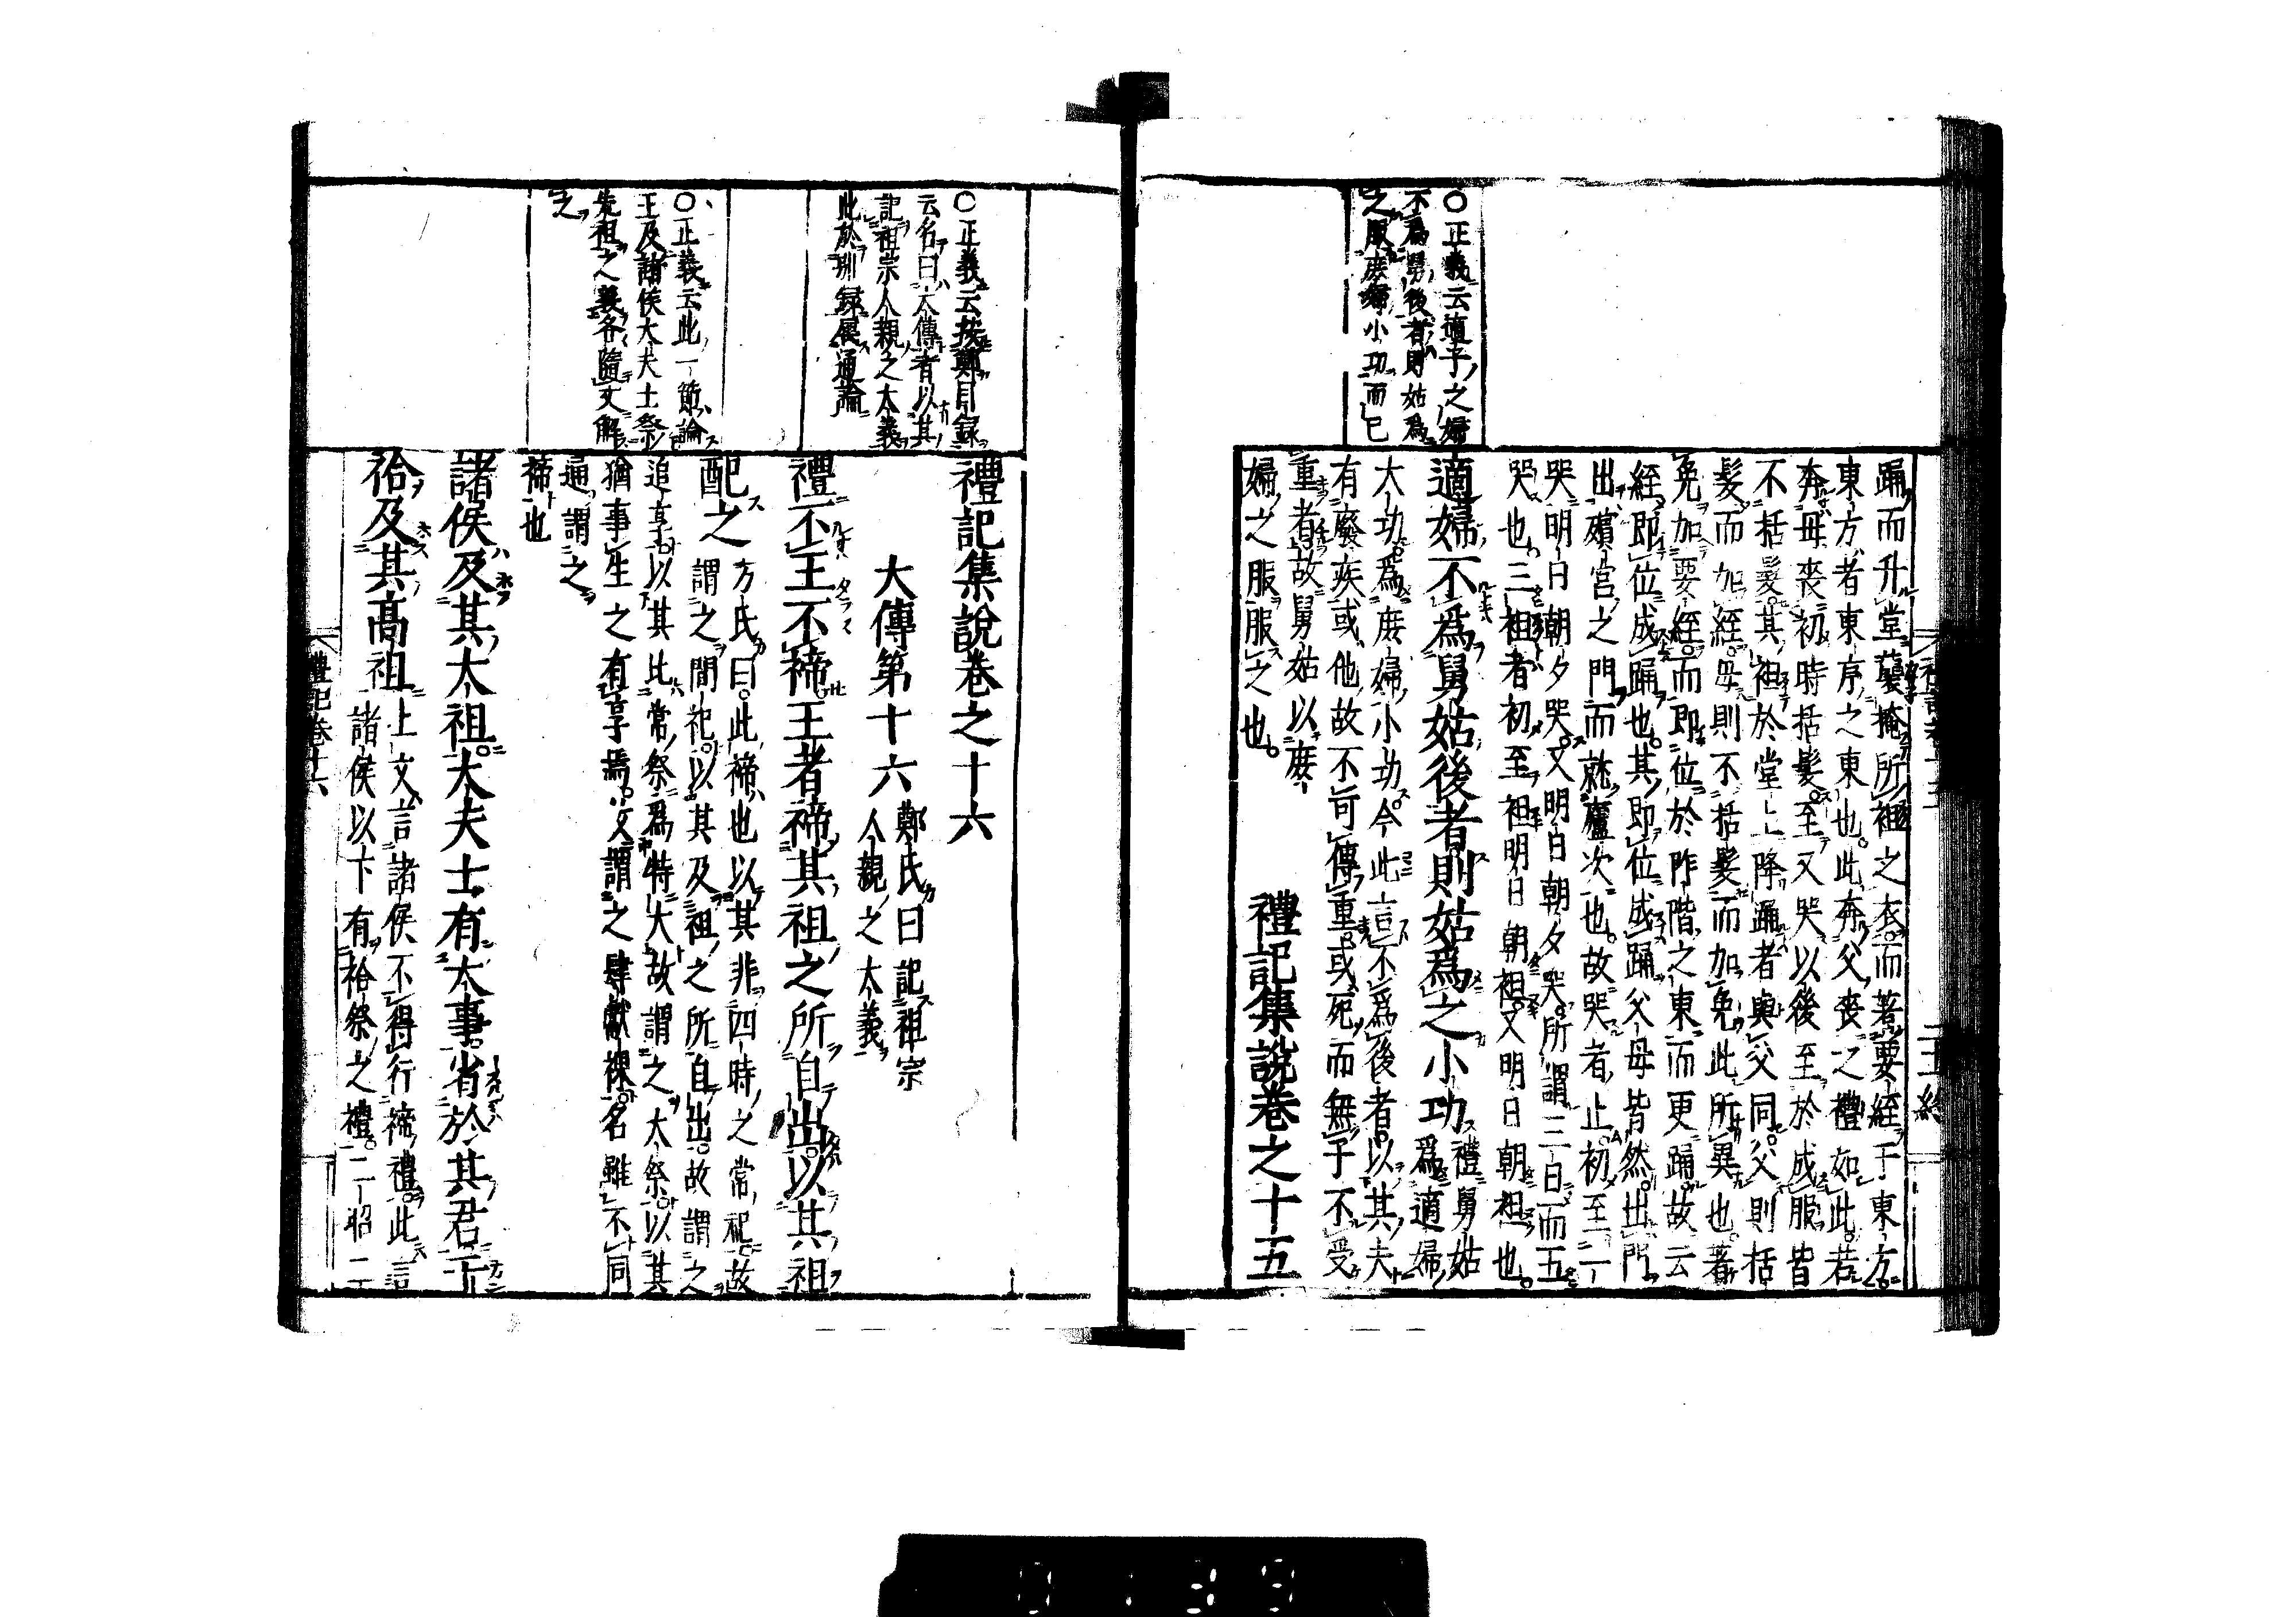 〇正義云適子之婦
不爲舅後者則姑爲
之服庶婦小功而已
踊而升堂襲掩所袒之衣而著要絰于東方
東方者東序之東也此奔父喪之禮如此若
奔母喪初時括髮至又哭以後至於成服皆
不括髮其袒於堂上降踊者與父同父則括
髮而加絰母則不括髮而加免此所異也著
免加要絰而即位於阼階之東而更踊故云
絰即位成踊也其即位成踊父母皆然出門
出殯宮之門而就廬次也故哭者止初至一
哭明日朝夕哭又明日朝夕哭所謂三日而五
哭也三袒者初至袒明日朝袒又明日朝袒也
適婦不爲舅姑後者則姑爲之小功
禮舅姑
爲適婦
大功爲庶婦小功今此言不爲後者以其夫
有廢疾或他故不可傳重或死而無子不受
重者故舅姑以庶
婦之服服之也
禮記集說卷之十五
〇正義云按鄭目録
云名曰大傳者以其
記祖宗人親之大義
此於别録屬通論
〇正義云此一節論
王及諸侯大夫士祭
先祖之義各隨文解
之
禮記集說卷之十六
大傳第十六
鄭氏曰記祖宗
人親之大義
禮不王不禘王者禘其祖之所自出以其祖
配之
方氏曰此禘也以其非四時之常祀故
謂之間祀以其及祖之所自出故謂之
追享以其比常祭爲特大故謂之大祭以其
猶事生之有享焉故謂之肆獻祼名雖不同
通謂之
禘也
諸侯及其大祖大夫士有大事省於其君干
祫及其高祖
上文言諸侯不得行禘禮此言
諸侯以下有祫祭之禮二昭二
禮記卷十六